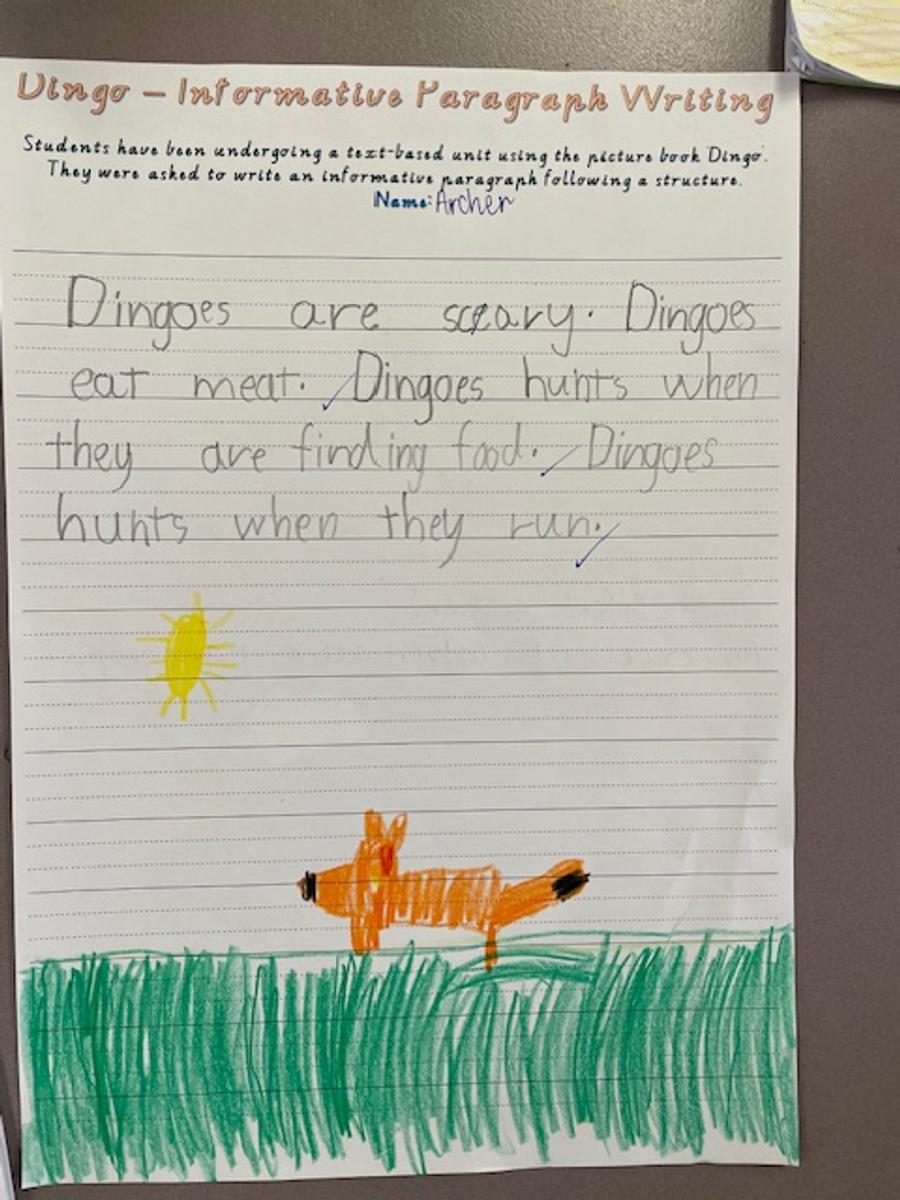 Dingo – Informative Paragraph Writing
Students have been undergoing a text-based unit using the picture book 'Dingo'.
They were asked to write an informative paragraph following a structure.
Name: Archer
Dingoes are scary. Dingoes
eat meat. Dingoes hunts when
they are finding food. Dingoes
hunts when they run.